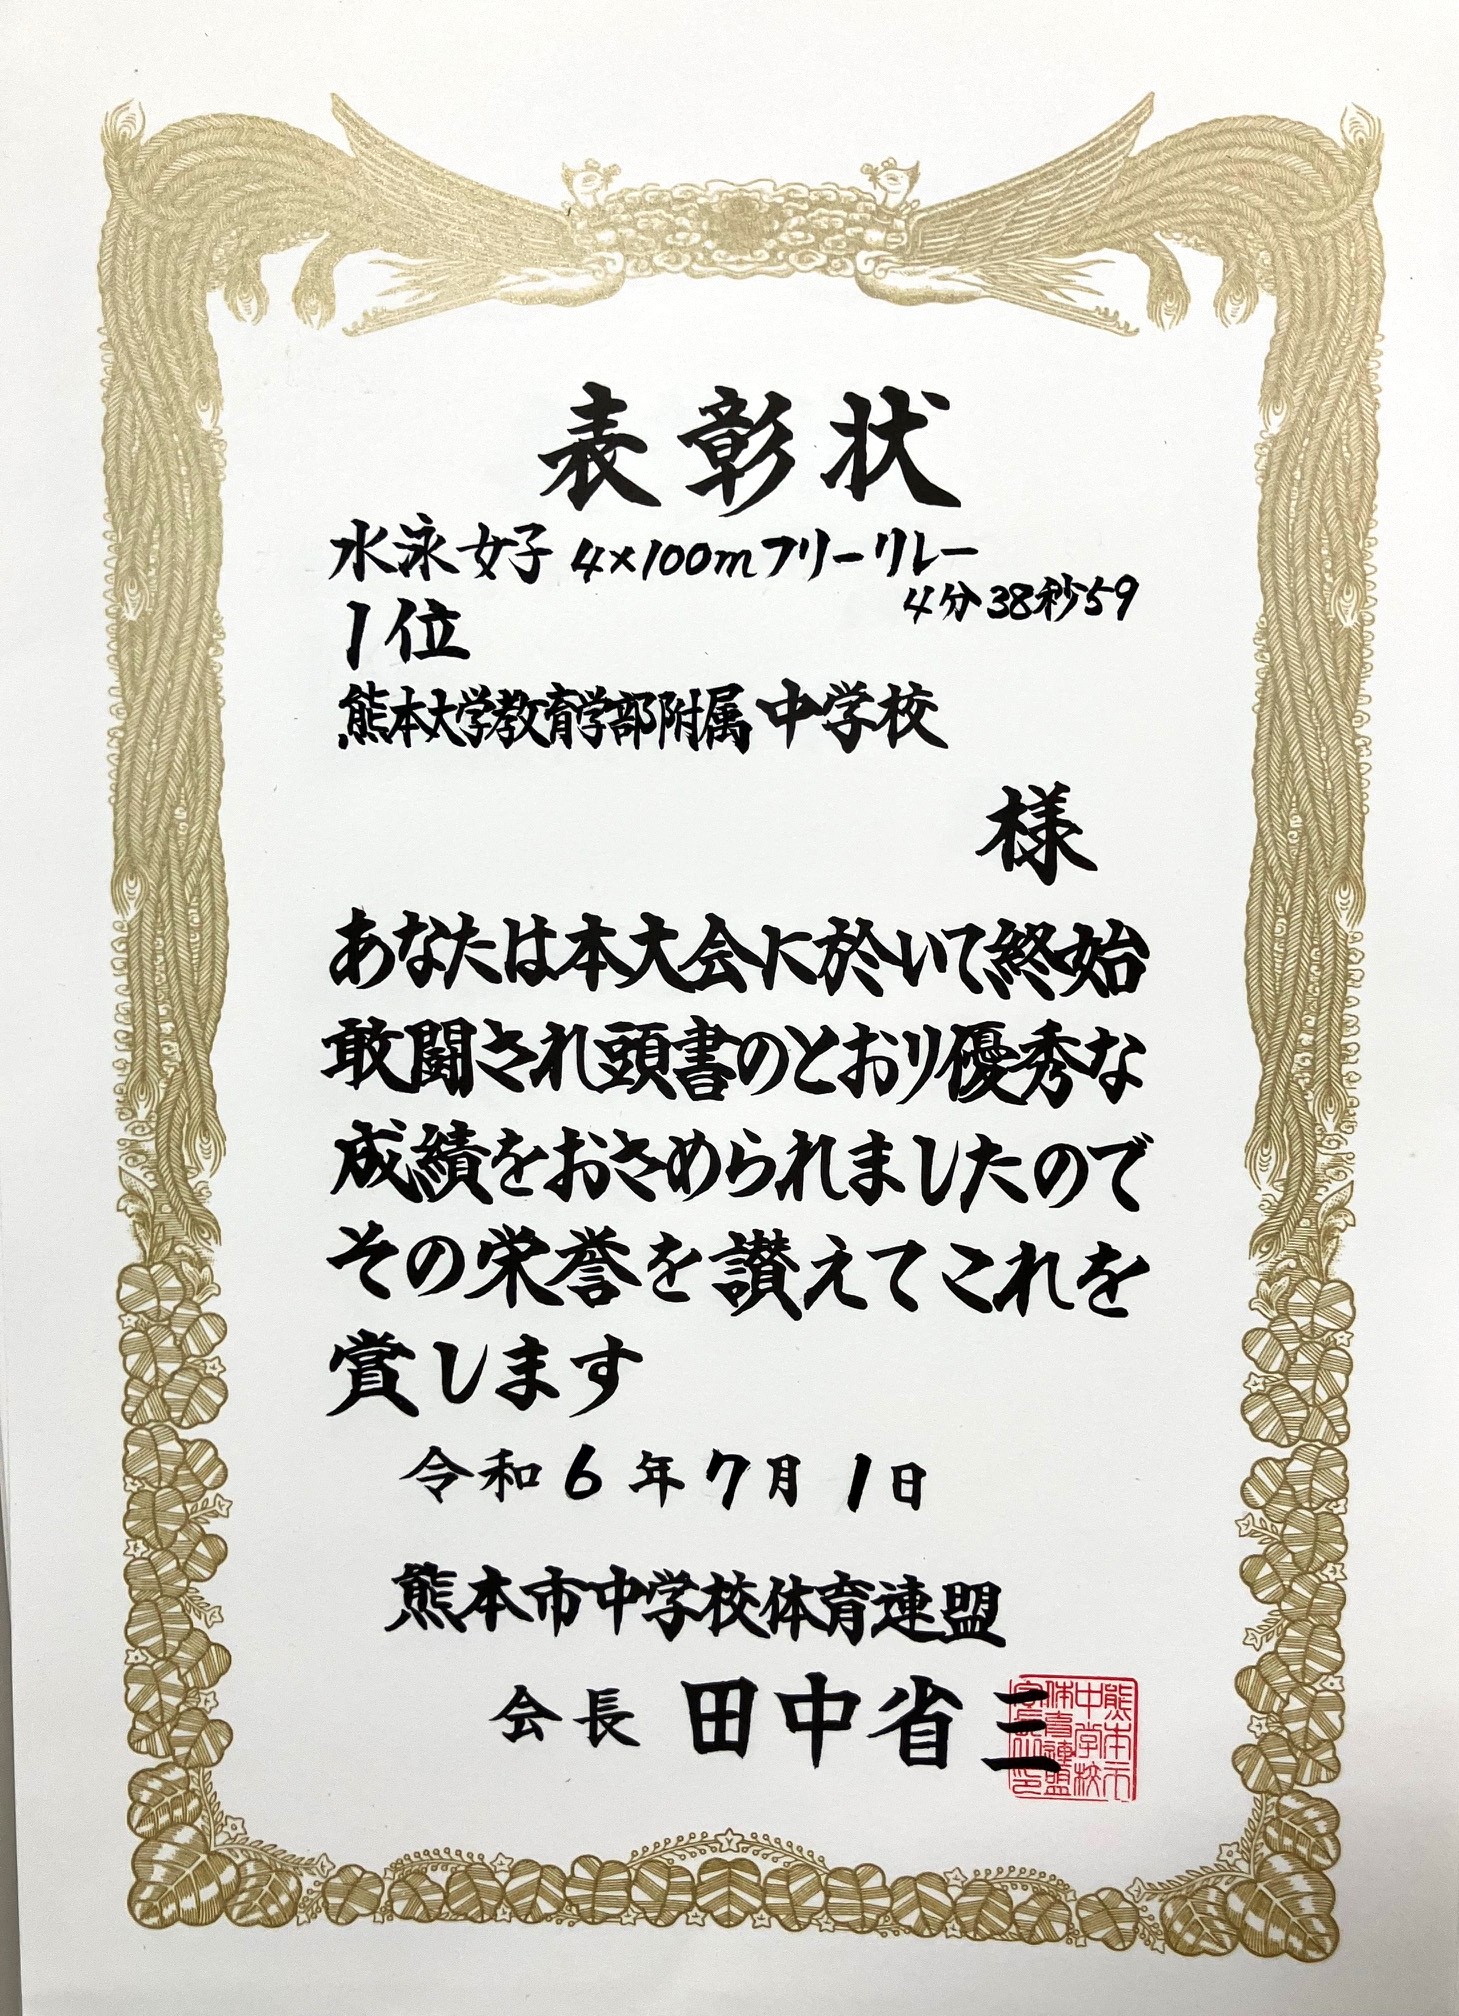 表彰状
水泳女子 4×100mフリーリレー
4分38秒59
1位
熊本大学教育学部附属 中学校
様
あなたは本大会に於いて終始
敢闘され頭書のとおり優秀な
成績をおさめられましたので
その栄誉を讃えてこれを
賞します
令和6年7月1日
熊本市中学校体育連盟
会長 田中省三